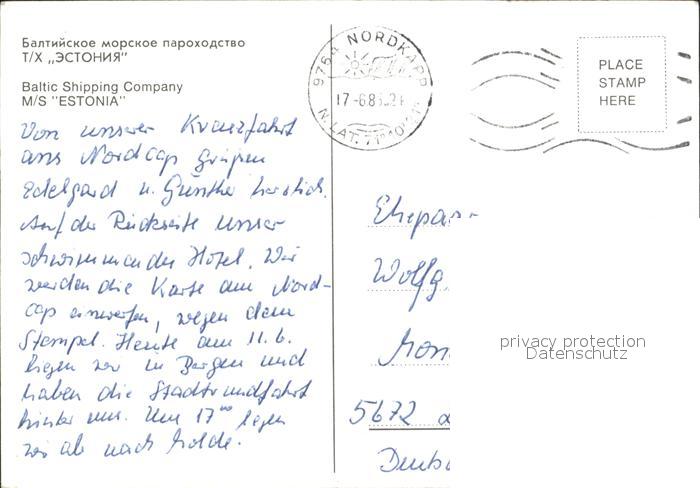 Балтийское морское пароходство
Т/Х „ЭСТОНИЯ"
Baltic Shipping Company
M/S "ESTONIA"
Von unserer Kreuzfahrt
ans Nordcap grüßen
Edelgard u. Günther herzlich.
Auf der Rückseite unser
schwimmendes Hotel. Wir
werden die Karte am Nord-
cap einwerfen, wegen dem
Stempel. Heute am 11.6.
liegen wir in Bergen und
haben die Stadtrundfahrt
hinter uns. Um 17⁰⁰ legen
wir ab nach Molde.
9764 NORDKAPP
17-6.8
N.LAT. 71°10'21"
PLACE
STAMP
HERE
Ehepaar
Wolfg.
5672
privacy protection
Datenschutz